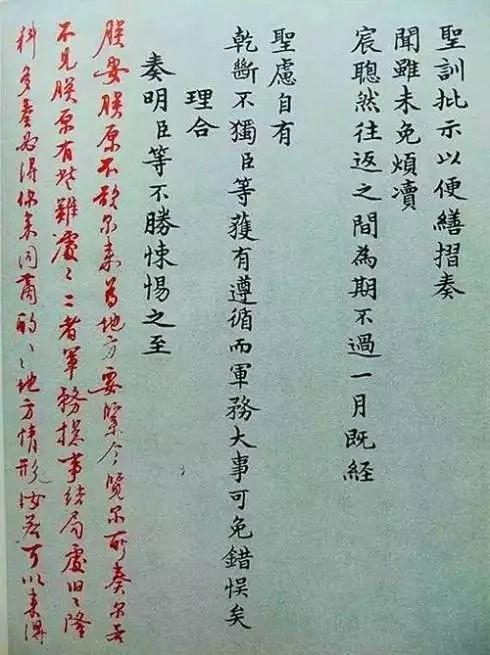 聖訓批示以便繕摺奏
聞雖未免煩瀆
宸聰然往返之間為期不過一月既經
聖慮自有
乾斷不獨臣等獲有遵循而軍務大事可免錯悞矣
理合
奏明臣等不勝悚惕之至
朕安朕原不欲尔来為地方要緊今覽尔所奏尔若
不見朕原有些難處〻二者軍務總事結局處旧〻隆
科多奏必得你来同商酌〻地方情形汝若可以来得